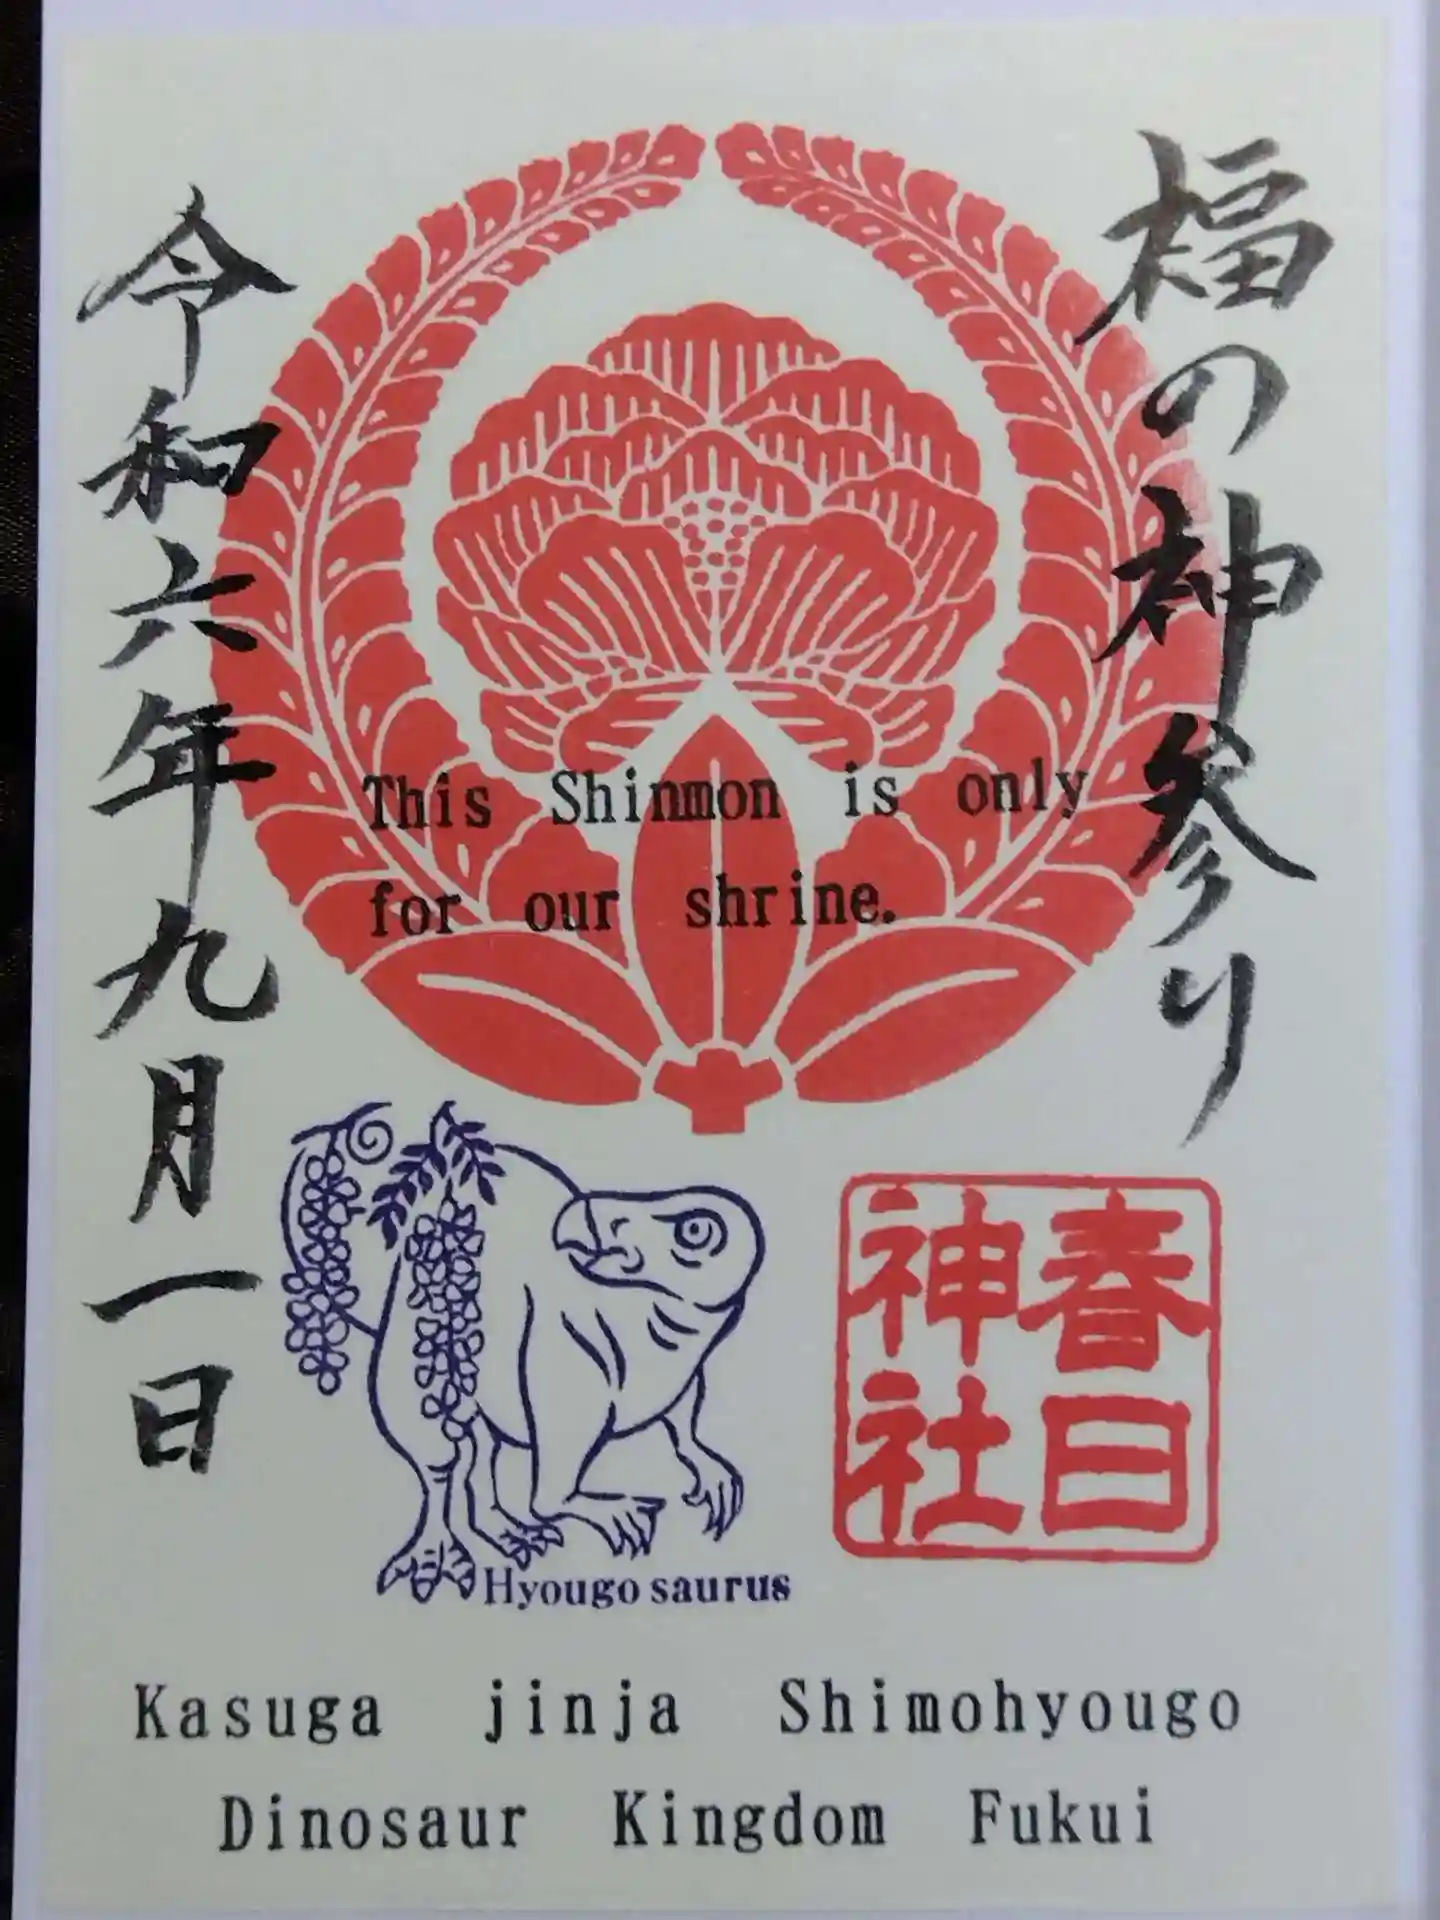 福の神参り
令和六年九月一日
This Shinmon is only
for our shrine.
春日
神社
Hyougo saurus
Kasuga jinja Shimohyougo
Dinosaur Kingdom Fukui